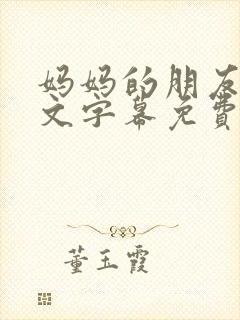 妈妈的朋友
文字幕免費
董玉霞